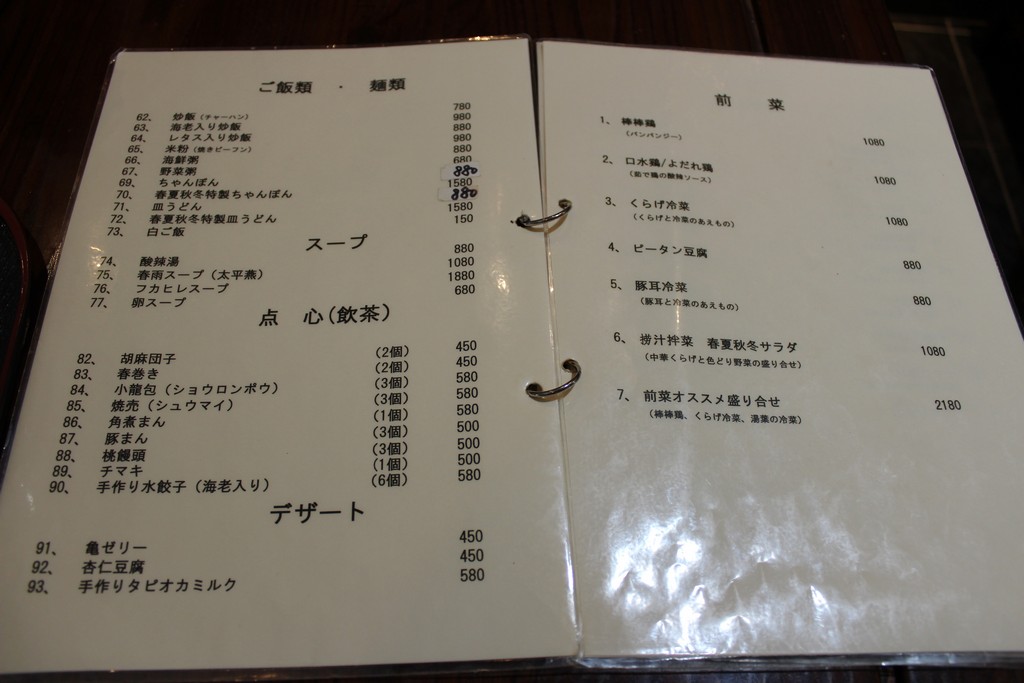 ご飯類 ・ 麺類
62、 炒飯（チャーハン） 780
63、 海老入り炒飯 980
64、 レタス入り炒飯 880
65、 米粉（焼きビーフン） 980
66、 海鮮粥 880
67、 野菜粥 680
69、 ちゃんぽん 880
70、 春夏秋冬特製ちゃんぽん 1580
71、 皿うどん 880
72、 春夏秋冬特製皿うどん 1580
73、 白ご飯 150
スープ
74、 酸辣湯 880
75、 春雨スープ（太平燕） 1080
76、 フカヒレスープ 1880
77、 卵スープ 680
点 心（飲茶）
82、 胡麻団子 （2個） 450
83、 春巻き （2個） 450
84、 小龍包（ショウロンポウ） （3個） 580
85、 焼売（シュウマイ） （3個） 580
86、 角煮まん （1個） 580
87、 豚まん （3個） 500
88、 桃饅頭 （3個） 500
89、 チマキ （1個） 500
90、 手作り水餃子（海老入り） （6個） 580
デザート
91、 亀ゼリー 450
92、 杏仁豆腐 450
93、 手作りタピオカミルク 580
前 菜
1、 棒棒鶏 1080
（バンバンジー）
2、 口水鶏/よだれ鶏 1080
（茹で鶏の酸辣ソース）
3、 くらげ冷菜 1080
（くらげと冷菜のあえもの）
4、 ピータン豆腐 880
5、 豚耳冷菜 880
（豚耳と冷菜のあえもの）
6、 捞汁拌菜 春夏秋冬サラダ 1080
（中華くらげと色どり野菜の盛り合せ）
7、 前菜オススメ盛り合せ 2180
（棒棒鶏、くらげ冷菜、湯葉の冷菜）